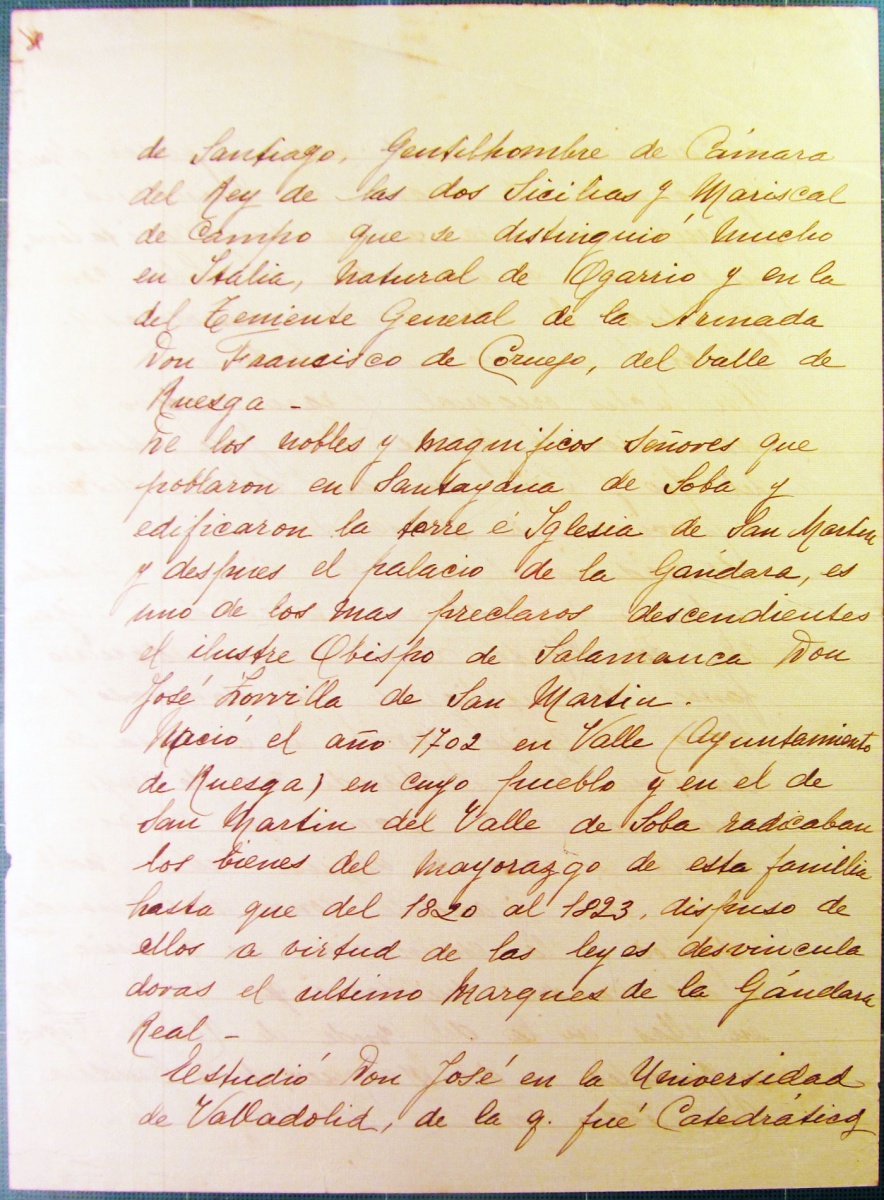 de Santiago, Gentilhombre de Cámara
del Rey de las dos Sicilias y Mariscal
de Campo que se distinguió mucho
en Italia, natural de Ogarrio y en la
del Teniente General de la Armada
Don Francisco de Cornejo, del valle de
Ruesga -
De los nobles y magnificos señores que
poblaron en Santayana de Soba y
edificaron la torre é Iglesia de San Martin
y despues el palacio de la Gándara, es
uno de los mas preclaros descendientes
el ilustre Obispo de Salamanca Don
José Zorrilla de San Martin.
Nació el año 1702 en Valle (Ayuntamiento
de Ruesga) en cuyo pueblo y en el de
San Martin del Valle de Soba radicaban
los bienes del mayorazgo de esta famillia
hasta que del 1820 al 1823, dispuso de
ellos a virtud de las leyes desvincula
doras el ultimo Marques de la Gándara
Real -
Estudió Don José en la Universidad
de Valladolid, de la q. fué Catedrático